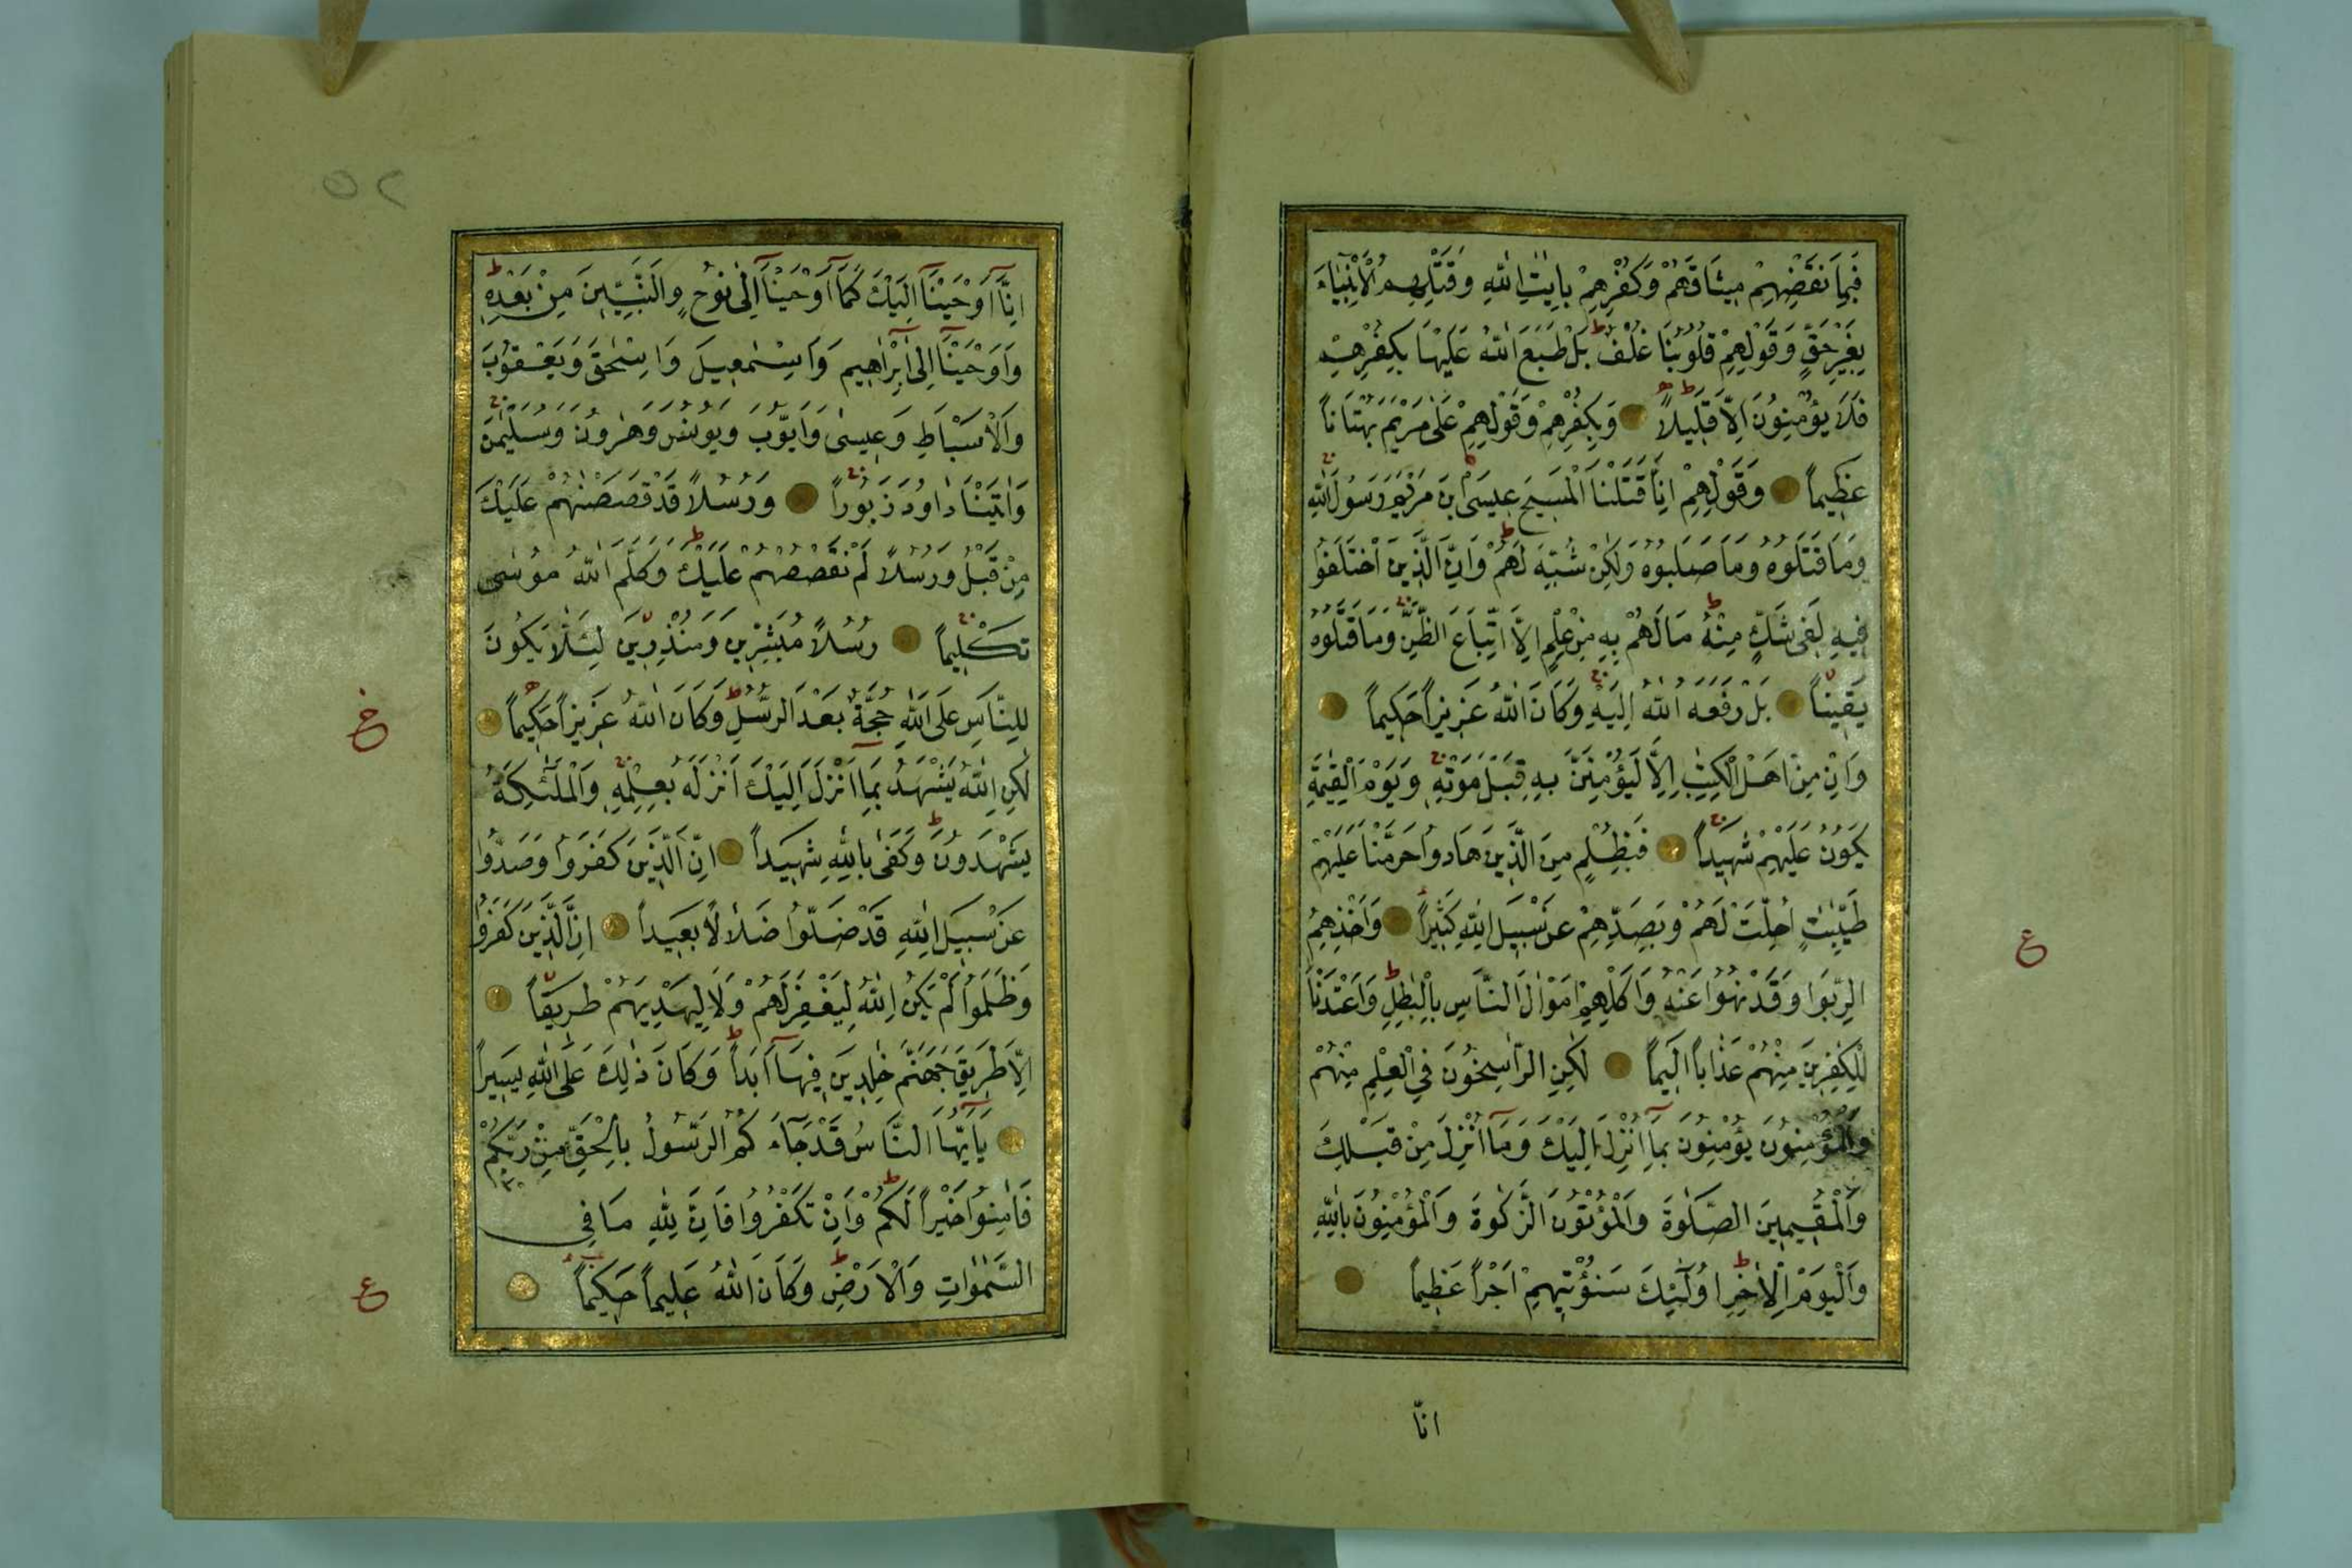 فَبِمَا نَقْضِهِمْ مِيثَاقَهُمْ وَكُفْرِهِمْ بِاٰيٰتِ اللّٰهِ وَقَتْلِهِمُ الْاَنْبِيَاءَ
بِغَيْرِ حَقٍّ وَقَوْلِهِمْ قُلُوبُنَا غُلْفٌ ط بَلْ طَبَعَ اللّٰهُ عَلَيْهَا بِكُفْرِهِمْ
فَلَا يُؤْمِنُونَ اِلَّا قَلِيلًا وَبِكُفْرِهِمْ وَقَوْلِهِمْ عَلٰى مَرْيَمَ بُهْتَانًا
عَظِيمًا وَقَوْلِهِمْ اِنَّا قَتَلْنَا الْمَسِيحَ عِيسَى ابْنَ مَرْيَمَ رَسُولَ اللّٰهِ
وَمَا قَتَلُوهُ وَمَا صَلَبُوهُ وَلٰكِنْ شُبِّهَ لَهُمْ ط وَاِنَّ الَّذِينَ اخْتَلَفُوا
فِيهِ لَفِى شَكٍّ مِنْهُ ط مَا لَهُمْ بِهِ مِنْ عِلْمٍ اِلَّا اتِّبَاعَ الظَّنِّ ج وَمَا قَتَلُوهُ
يَقِينًا بَلْ رَفَعَهُ اللّٰهُ اِلَيْهِ ج وَكَانَ اللّٰهُ عَزِيزًا حَكِيمًا
وَاِنْ مِنْ اَهْلِ الْكِتٰبِ اِلَّا لَيُؤْمِنَنَّ بِهِ قَبْلَ مَوْتِهِ ج وَيَوْمَ الْقِيٰمَةِ
يَكُونُ عَلَيْهِمْ شَهِيدًا ج فَبِظُلْمٍ مِنَ الَّذِينَ هَادُوا حَرَّمْنَا عَلَيْهِمْ
طَيِّبٰتٍ اُحِلَّتْ لَهُمْ وَبِصَدِّهِمْ عَنْ سَبِيلِ اللّٰهِ كَثِيرًا وَاَخْذِهِمُ
الرِّبٰوا وَقَدْ نُهُوا عَنْهُ وَاَكْلِهِمْ اَمْوَالَ النَّاسِ بِالْبَاطِلِ ط وَاَعْتَدْنَا
لِلْكٰفِرِينَ مِنْهُمْ عَذَابًا اَلِيمًا لٰكِنِ الرَّاسِخُونَ فِى الْعِلْمِ مِنْهُمْ
وَالْمُؤْمِنُونَ يُؤْمِنُونَ بِمَا اُنْزِلَ اِلَيْكَ وَمَا اُنْزِلَ مِنْ قَبْلِكَ
وَالْمُقِيمِينَ الصَّلٰوةَ وَالْمُؤْتُونَ الزَّكٰوةَ وَالْمُؤْمِنُونَ بِاللّٰهِ
وَالْيَوْمِ الْاٰخِرِ ط اُولٰئِكَ سَنُؤْتِيهِمْ اَجْرًا عَظِيمًا
ع
انّا
٥٢
اِنَّا اَوْحَيْنَا اِلَيْكَ كَمَا اَوْحَيْنَا اِلٰى نُوحٍ وَالنَّبِيِّينَ مِنْ بَعْدِهِ ط
وَاَوْحَيْنَا اِلٰى اِبْرَاهِيمَ وَاِسْمٰعِيلَ وَاِسْحٰقَ وَيَعْقُوبَ
وَالْاَسْبَاطِ وَعِيسٰى وَاَيُّوبَ وَيُونُسَ وَهٰرُونَ وَسُلَيْمٰنَ ج
وَاٰتَيْنَا دَاوُدَ زَبُورًا ج وَرُسُلًا قَدْ قَصَصْنٰهُمْ عَلَيْكَ
مِنْ قَبْلُ وَرُسُلًا لَمْ نَقْصُصْهُمْ عَلَيْكَ ط وَكَلَّمَ اللّٰهُ مُوسٰى
تَكْلِيمًا ج رُسُلًا مُبَشِّرِينَ وَمُنْذِرِينَ لِئَلَّا يَكُونَ
لِلنَّاسِ عَلَى اللّٰهِ حُجَّةٌ بَعْدَ الرُّسُلِ ط وَكَانَ اللّٰهُ عَزِيزًا حَكِيمًا
لٰكِنِ اللّٰهُ يَشْهَدُ بِمَا اَنْزَلَ اِلَيْكَ اَنْزَلَهُ بِعِلْمِهِ ج وَالْمَلٰئِكَةُ
يَشْهَدُونَ ط وَكَفٰى بِاللّٰهِ شَهِيدًا اِنَّ الَّذِينَ كَفَرُوا وَصَدُّوا
عَنْ سَبِيلِ اللّٰهِ قَدْ ضَلُّوا ضَلَالًا بَعِيدًا اِنَّ الَّذِينَ كَفَرُوا
وَظَلَمُوا لَمْ يَكُنِ اللّٰهُ لِيَغْفِرَ لَهُمْ وَلَا لِيَهْدِيَهُمْ طَرِيقًا
اِلَّا طَرِيقَ جَهَنَّمَ خٰلِدِينَ فِيهَا اَبَدًا ط وَكَانَ ذٰلِكَ عَلَى اللّٰهِ يَسِيرًا
يَا اَيُّهَا النَّاسُ قَدْ جَاءَكُمُ الرَّسُولُ بِالْحَقِّ مِنْ رَبِّكُمْ
فَاٰمِنُوا خَيْرًا لَكُمْ ط وَاِنْ تَكْفُرُوا فَاِنَّ لِلّٰهِ مَا فِى
السَّمٰوَاتِ وَالْاَرْضِ ط وَكَانَ اللّٰهُ عَلِيمًا حَكِيمًا
خ
ع